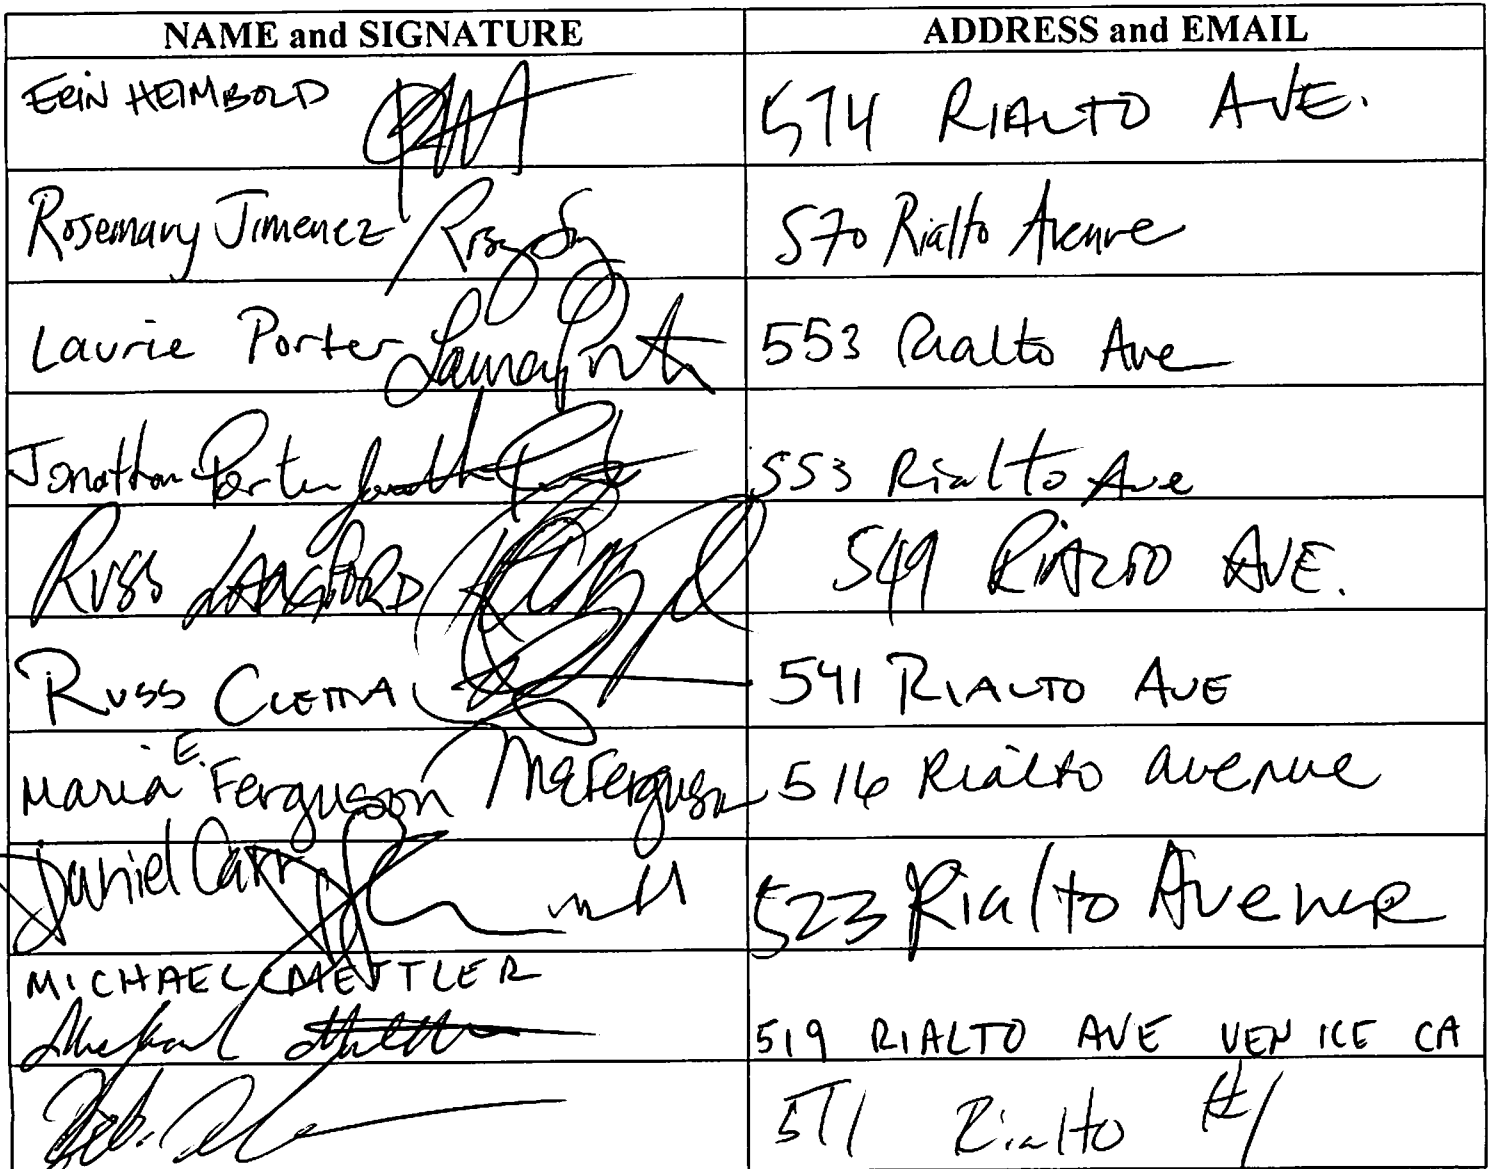 NAME and SIGNATURE ADDRESS and EMAIL
ERIN HEIMBOLD 574 RIALTO AVE.
Rosemary Jimenez 570 Rialto Avenue
Laurie Porter 553 Rialto Ave
Jonathan Porter 553 Rialto Ave
RUSS LANGFORD 549 RIALTO AVE.
RUSS CLETTA 541 RIALTO AVE
Maria E. Ferguson MEFerguson 516 Rialto avenue
Daniel Carr 523 Rialto Avenue
MICHAEL METTLER
519 RIALTO AVE VENICE CA
511 Rialto #1